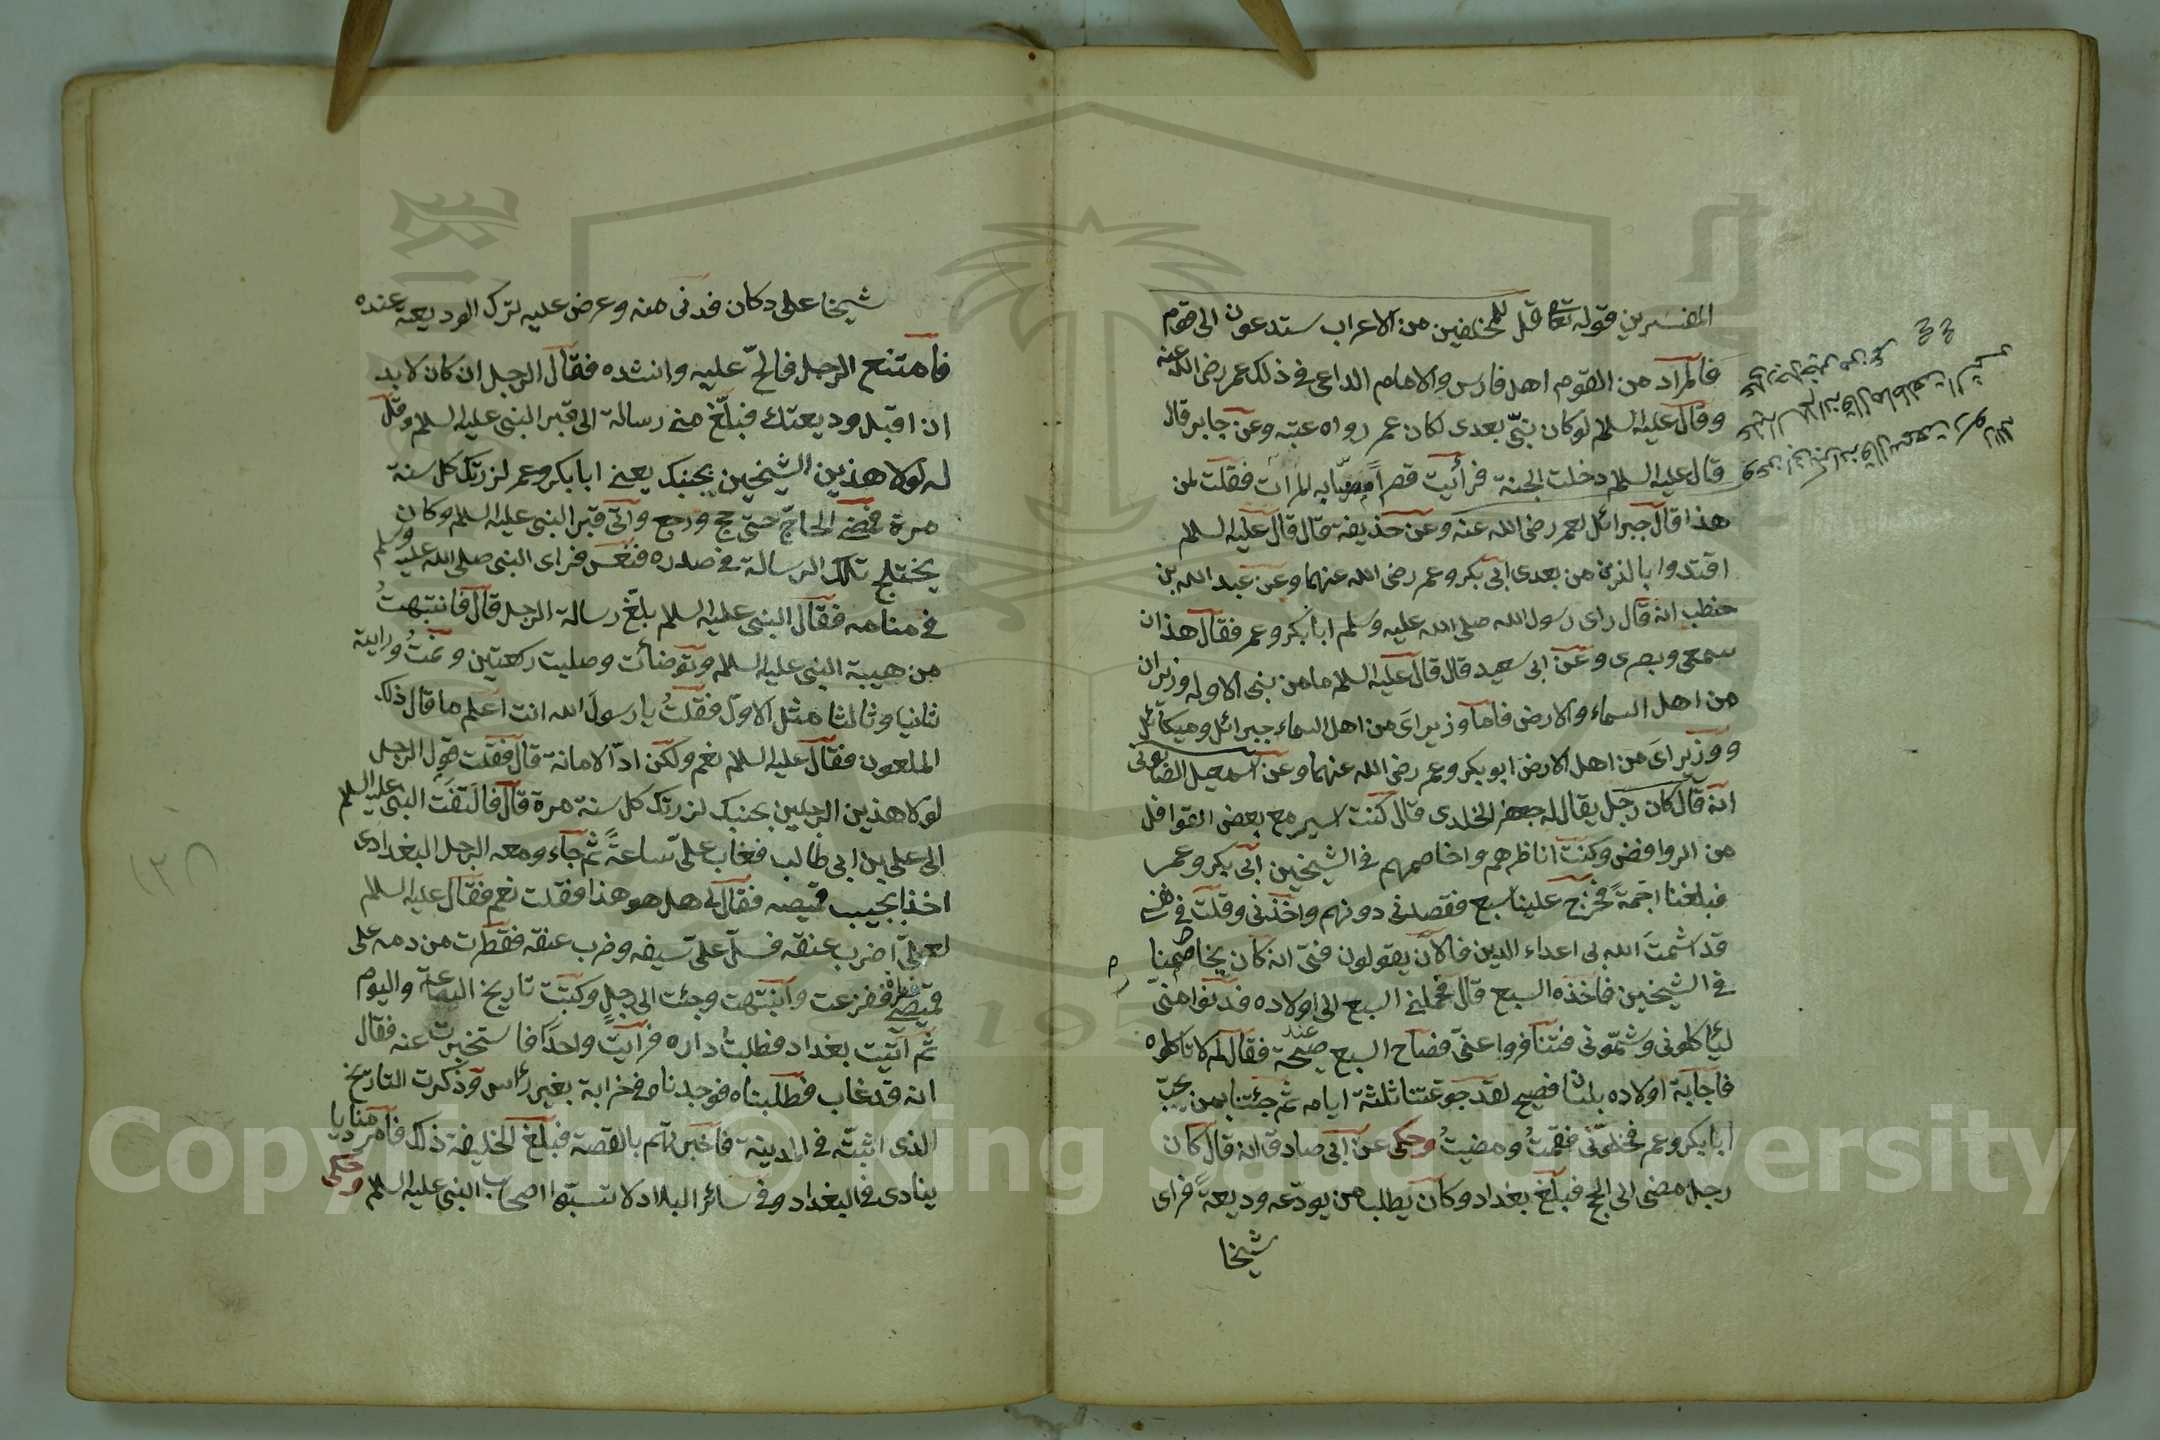 المفسرين قوله تعا قل للمخلفين من الاعراب ستدعون الى قوم
فالمراد من القوم اهل فارس والامام الداعى فى ذلك عمر رضى الله عنه
وقال عليه السلم لو كان نبى بعدى لكان عمر رواه عتبه وعن جابر قال
قال عليه السلم دخلت الجنة فرأيت قصرا فقلت لمن
هذا قال جبرائل لعمر رضى الله عنه وعن حذيفة قال قال عليه السلم
اقتدوا بالذين من بعدى ابى بكر وعمر رضى الله عنهما وعن عبد الله بن
حنطب انه قال راى رسول الله صلى الله عليه وسلم ابا بكر وعمر فقال هذان
سمعى وبصرى وعن ابى سعيد قال قال عليه السلم ما من نبى الا وله وزيران
من اهل السماء والارض فاما وزيراى من اهل السماء جبرائل وميكائل
ووزيراى من اهل الارض ابو بكر وعمر رضى الله عنهما وعن اسمعيل
انه قال كان رجل يقال له جعفر الخلدى قال كنت اسير مع بعض القوافل
من الروافض وكنت اناظرهم واخاصمهم فى الشيخين ابى بكر وعمر
فبلغنا اجمة فخرج علينا سبع فقصدنى دونهم واخذنى وقلت فى نفسى
قد اشمت الله بى اعداء الدين فالآن يقولون فتى انه كان يخاصمنا
فى الشيخين فاخذه السبع قال فحملنى السبع الى اولاده فدنوا منى
ليأكلونى وشمونى فتنافروا عنى فصاح السبع عند صيحة فقال لم لا تاكلوه
فاجابه اولاده بلسان فصيح لقد جوعتنا ثلثة ايام ثم جئتنا بمن يحب
ابا بكر وعمر فخلونى فقمت ومضيت وحكى عن ابى صادق انه قال كان
رجل مضى الى الحج فبلغ بغداد وكان يطلب من يودعه وديعة فراى
شيخا
شيخا على دكان فدنى منه وعرض عليه لترك الوديعة عنده
فامتنع الرجل فالح عليه وانشده فقال الرجل ان كان لا بد
ان اقبل وديعتك فبلغ منى رسالة الى قبر النبى عليه السلم وقل
له لولا هذين الشيخين بجنبك يعنى ابا بكر وعمر لزرتك كل سنة
مرة فمضى الحاج حتى حج ورجع واتى قبر النبى عليه السلم وكان
يختلج تلك الرسالة فى صدره فنعس فراى النبى صلى الله عليه وسلم
فى منامه فقال النبى عليه السلم بلغ رسالة الرجل قال فانتبهت
من هيبة النبى عليه السلم وتوضأت وصليت ركعتين ونمت ورايته
ثانيا وثالثا مثل الاول فقلت يا رسول الله انت اعلم ما قال ذلك
الملعون فقال عليه السلم نعم ولكن اد الامانة قال فقلت قول الرجل
لولا هذين الرجلين بجنبك لزرتك كل سنة مرة قال فالتفت النبى عليه السلم
الى على بن ابى طالب فغاب على ساعة ثم جاء ومعه الرجل البغدادى
اخذا بجيب قميصه فقال لى هل هو هذا فقلت نعم فقال عليه السلم
لعلى اضرب عنقه فسل على سيفه وضرب عنقه فقطرت من دمه على
قميصى قطرة ففزعت وانتبهت وجئت الى رجل وكتبت تاريخ الساعة واليوم
ثم اتيت بغداد فطلبت داره فرأيت واحدا فاستخبرت عنه فقال
انه قد غاب فطلبناه فوجدناه فى خرابة بغير رأس وذكرت التاريخ
الذى اثبته فى المدينة فاخبرتهم بالقصة فبلغ الخليفة ذلك فامر مناديا
ينادى فى البغداد وفى سائر البلاد لا تسبوا اصحاب النبى عليه السلم وحكى
١٣٨
Copyright © King Saud University
195